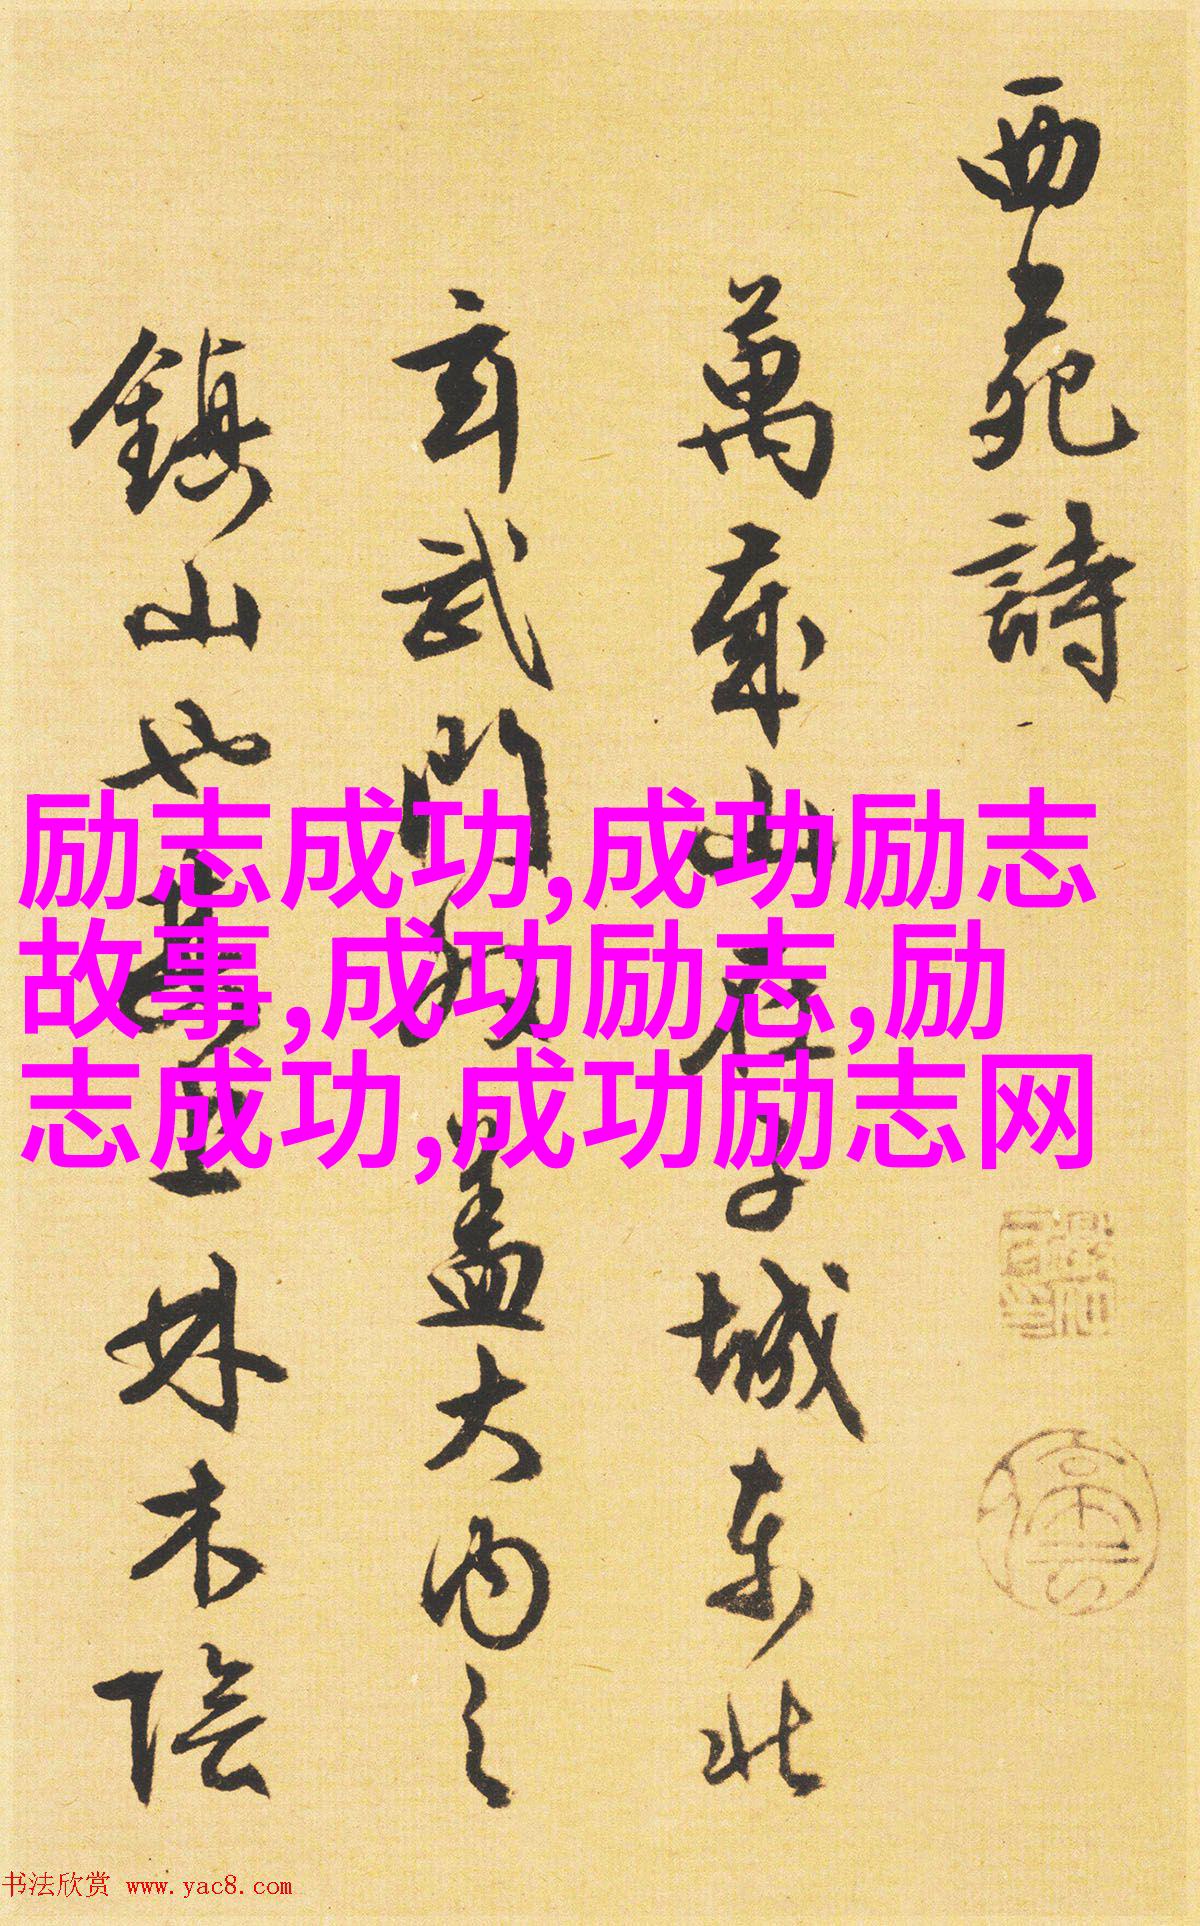 西苑詩
萬歲山在子城東北
玄武門外盖大内之
鎮山也其上林木陰
励志成功,成功励志
故事,成功励志,励
志成功,成功励志网
书法欣赏 www.yac8.com